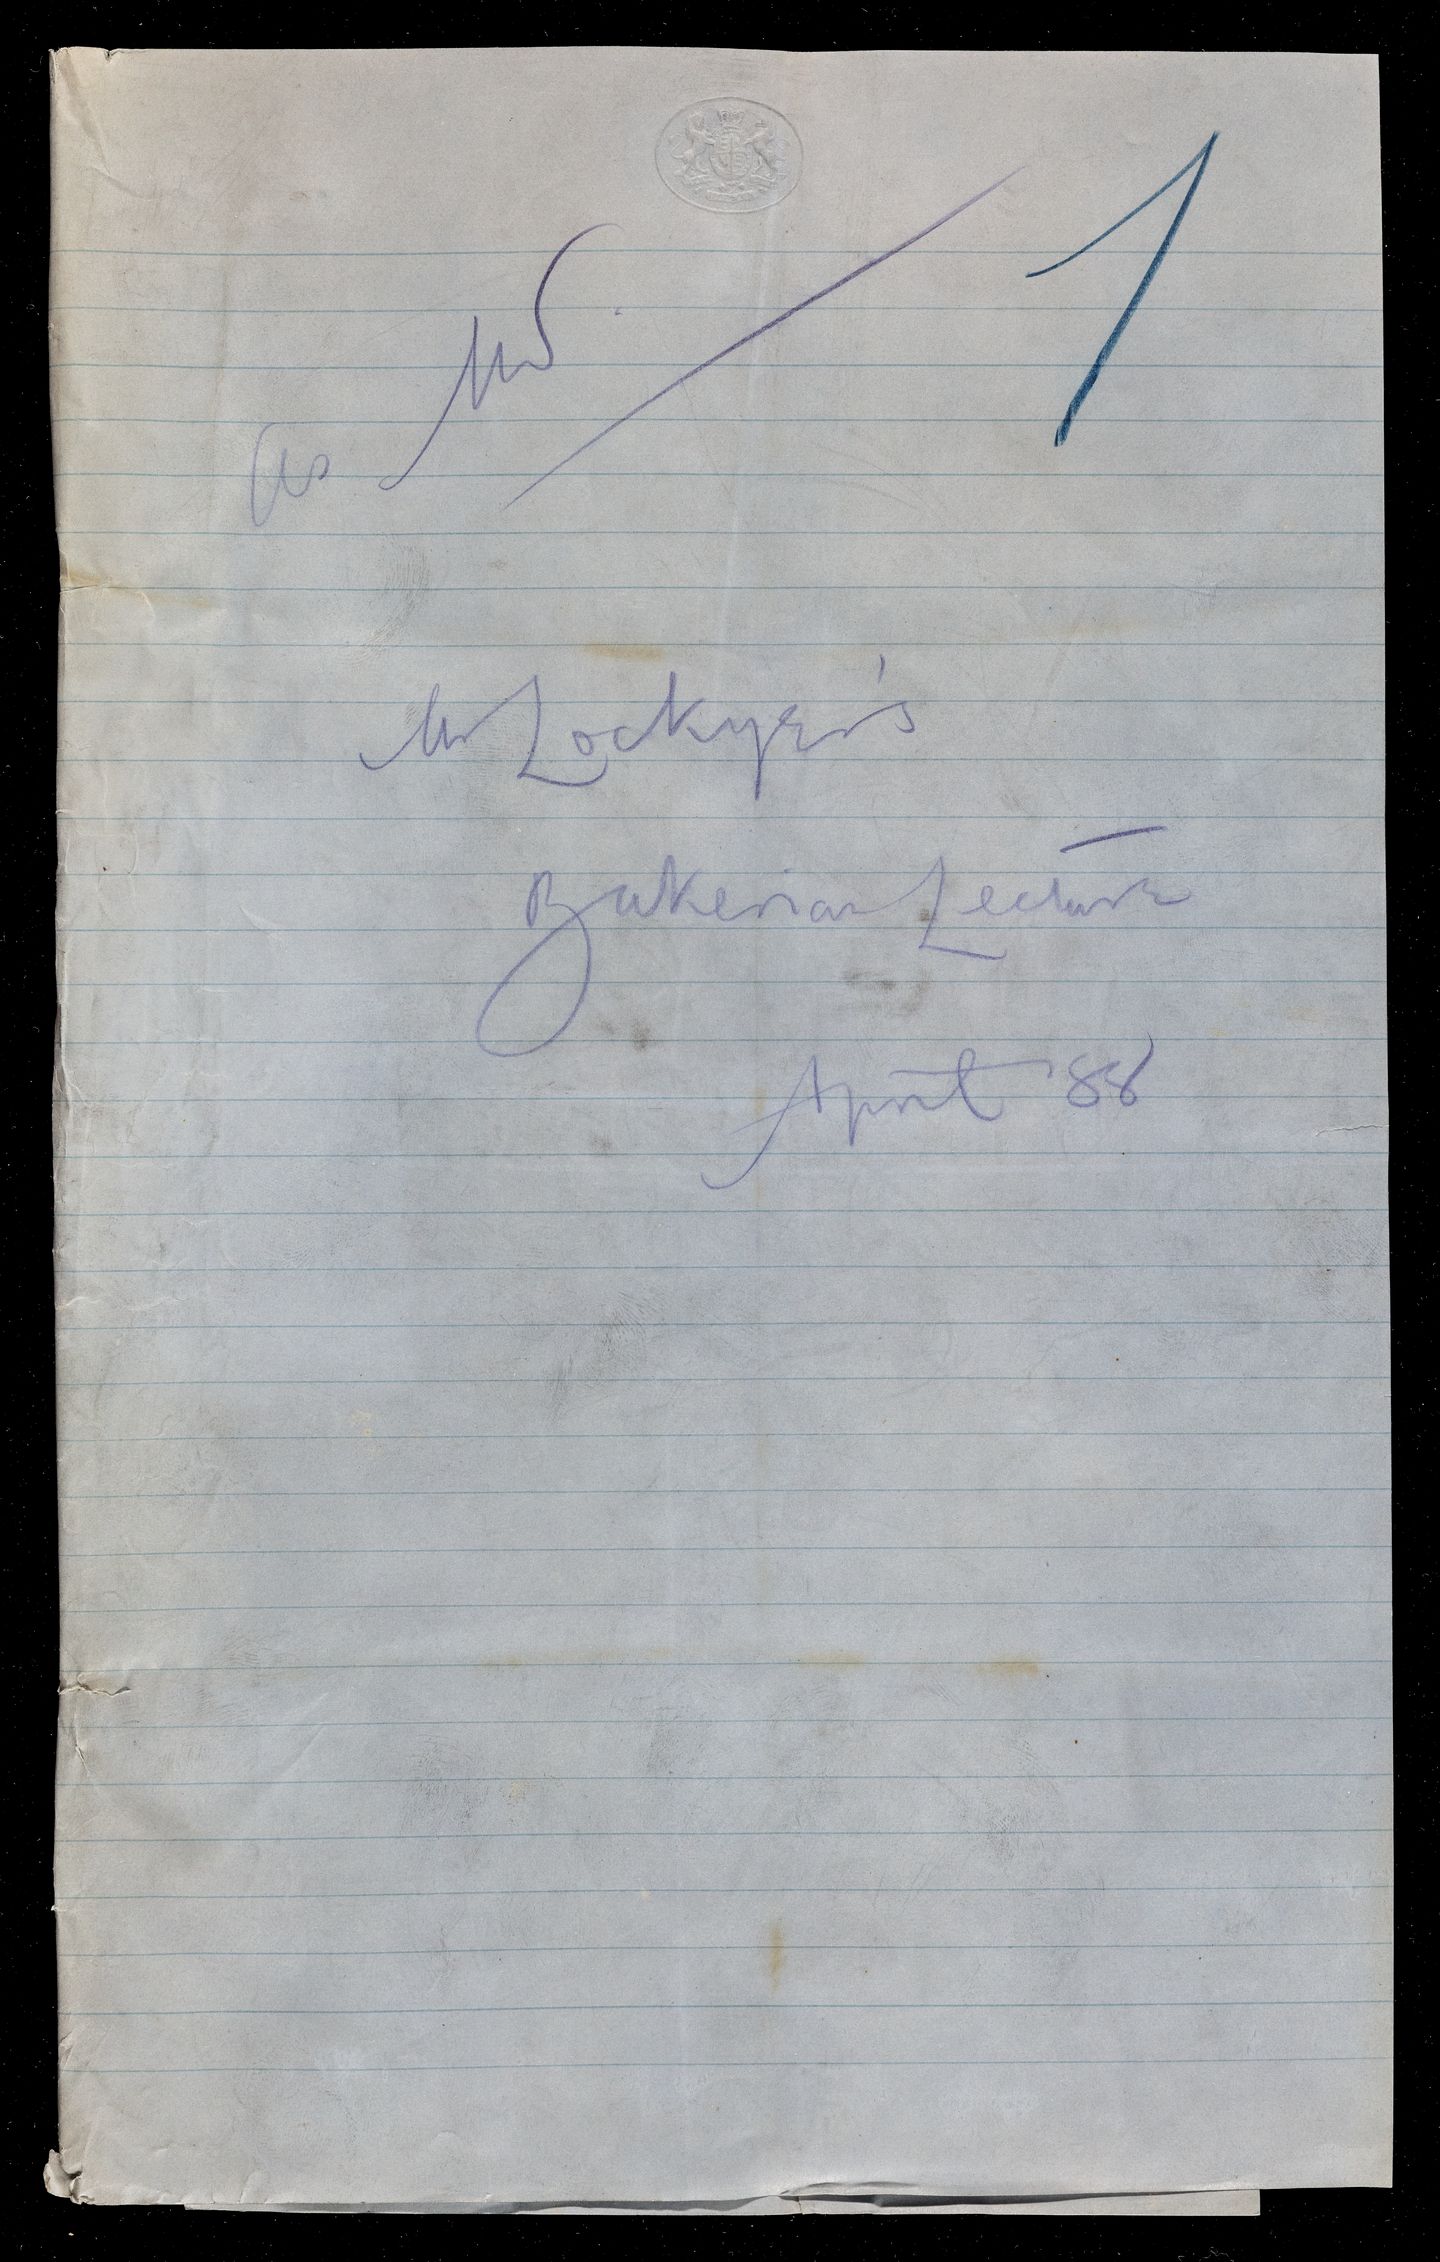 1
as MS.
Mr Lockyer's
Bakerian Lecture
April '88